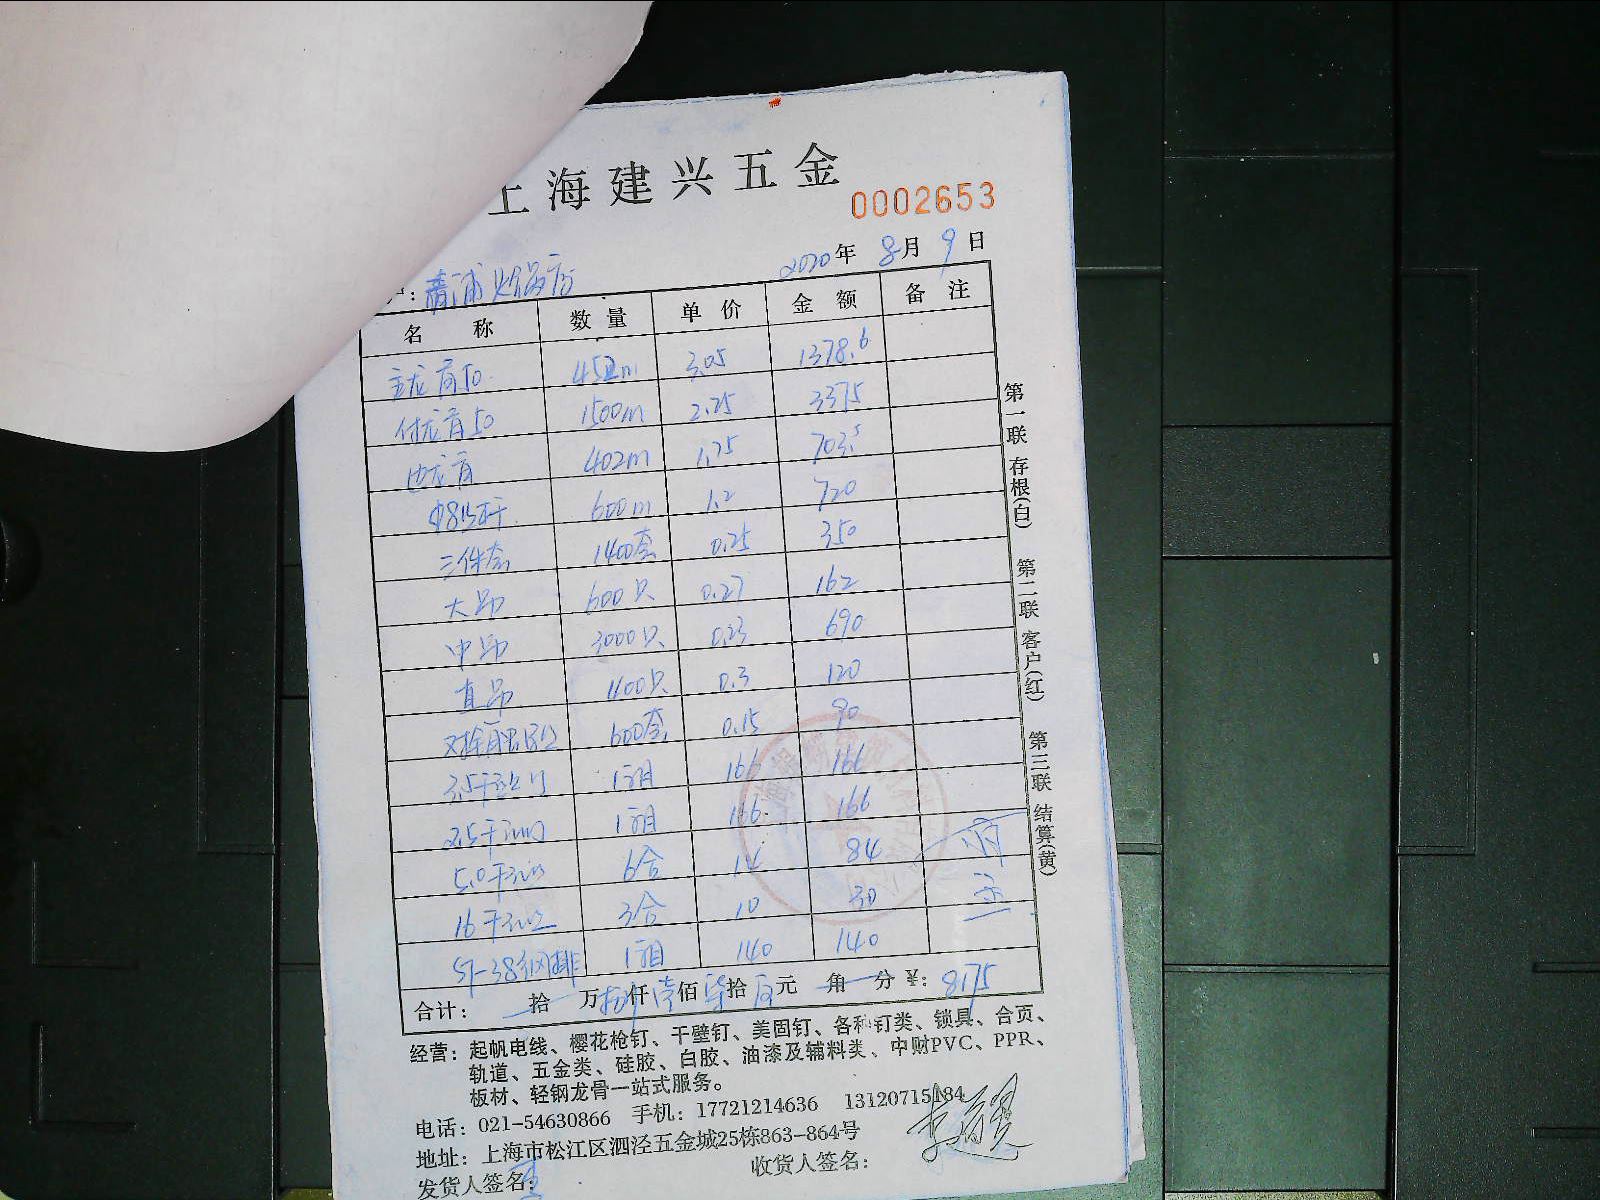 上海建兴五金
0002653
2020年 8月 9日
户：青浦火锅店
名 称 数 量 单 价 金 额 备 注
主龙骨50 452m 3.05 1378.6
付龙骨50 1500m 2.25 3375
边龙骨 402m 1.75 703.5
Φ8吊杆 600m 1.2 720
三件套 1400套 0.25 350
大吊 600只 0.27 162
中吊 3000只 0.23 690
直吊 400只 0.3 120
600套 0.15 90
3.5干 1箱 166 166
2.5干 1箱 166 166
5.0干 6合 14 84
16干 3合 10 30
ST-38钢排 1箱 140 140
合计： 拾 万 捌仟 壹佰 柒拾 元 角 分 ¥：8175
第一联 存根(白) 第二联 客户(红) 第三联 结算(黄)
经营：起帆电线、樱花枪钉、干壁钉、美固钉、各种钉类、锁具、合页、
轨道、五金类、硅胶、白胶、油漆及辅料类、中财PVC、PPR、
板材、轻钢龙骨一站式服务。
电话：021-54630866 手机：17721214636 13120715184
地址：上海市松江区泗泾五金城25栋863-864号
发货人签名： 收货人签名：